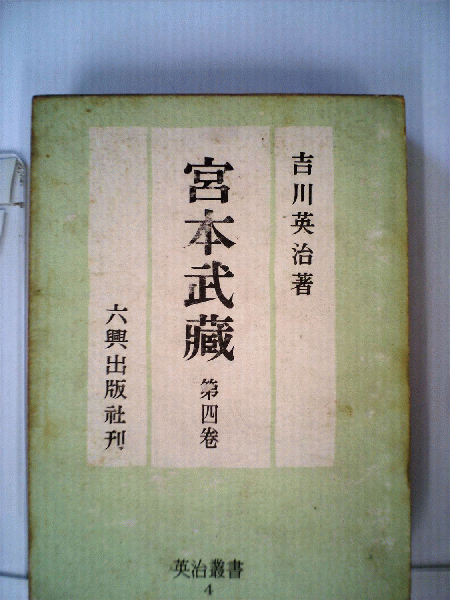 吉川英治著
宮本武藏 第四卷
六興出版社刊
英治叢書
4